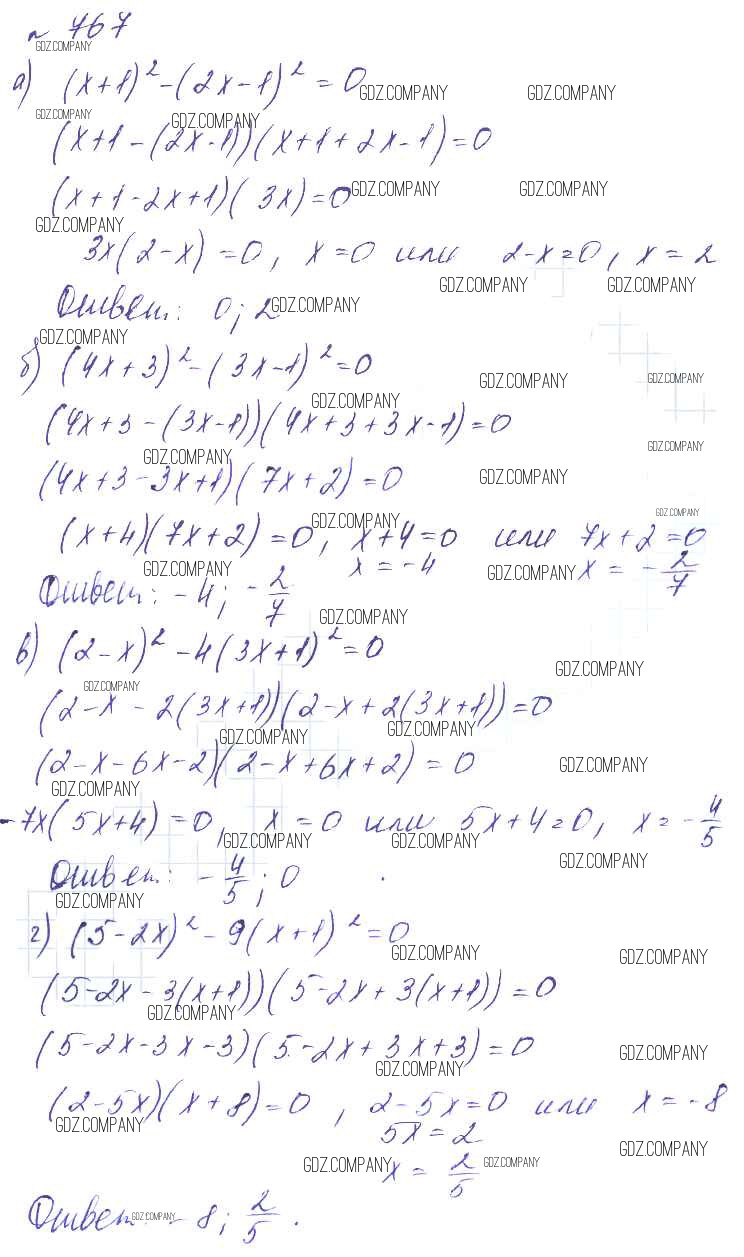 № 767
GDZ.COMPANY
а) (x+1)² - (2x-1)² = 0
GDZ.COMPANY GDZ.COMPANY
GDZ.COMPANY GDZ.COMPANY
(x+1-(2x-1))(x+1+2x-1)=0
(x+1-2x+1)(3x)=0
GDZ.COMPANY GDZ.COMPANY
GDZ.COMPANY
3x(2-x)=0, x=0 или 2-x=0, x=2
GDZ.COMPANY GDZ.COMPANY
Ответ: 0; 2
GDZ.COMPANY
GDZ.COMPANY
б) (4x+3)² - (3x-1)² = 0
GDZ.COMPANY GDZ.COMPANY
GDZ.COMPANY
(4x+3-(3x-1))(4x+3+3x-1)=0
GDZ.COMPANY
GDZ.COMPANY
(4x+3-3x+1)(7x+2)=0
GDZ.COMPANY
GDZ.COMPANY GDZ.COMPANY
(x+4)(7x+2)=0, x+4=0 или 7x+2=0
GDZ.COMPANY x=-4 GDZ.COMPANY x=-2/7
Ответ: -4; -2/7
GDZ.COMPANY
в) (2-x)² - 4(3x+1)² = 0
GDZ.COMPANY
GDZ.COMPANY
(2-x-2(3x+1))(2-x+2(3x+1))=0
GDZ.COMPANY GDZ.COMPANY
(2-x-6x-2)(2-x+6x+2)=0
GDZ.COMPANY
GDZ.COMPANY
-7x(5x+4)=0, x=0 или 5x+4=0, x=-4/5
GDZ.COMPANY GDZ.COMPANY
GDZ.COMPANY
Ответ: -4/5; 0.
GDZ.COMPANY
г) (5-2x)² - 9(x+1)² = 0
GDZ.COMPANY GDZ.COMPANY
(5-2x-3(x+1))(5-2x+3(x+1))=0
GDZ.COMPANY
(5-2x-3x-3)(5-2x+3x+3)=0
GDZ.COMPANY
GDZ.COMPANY
(2-5x)(x+8)=0, 2-5x=0 или x=-8
GDZ.COMPANY 5x=2 GDZ.COMPANY
GDZ.COMPANY x=2/5 GDZ.COMPANY
Ответ: -8; 2/5.
GDZ.COMPANY